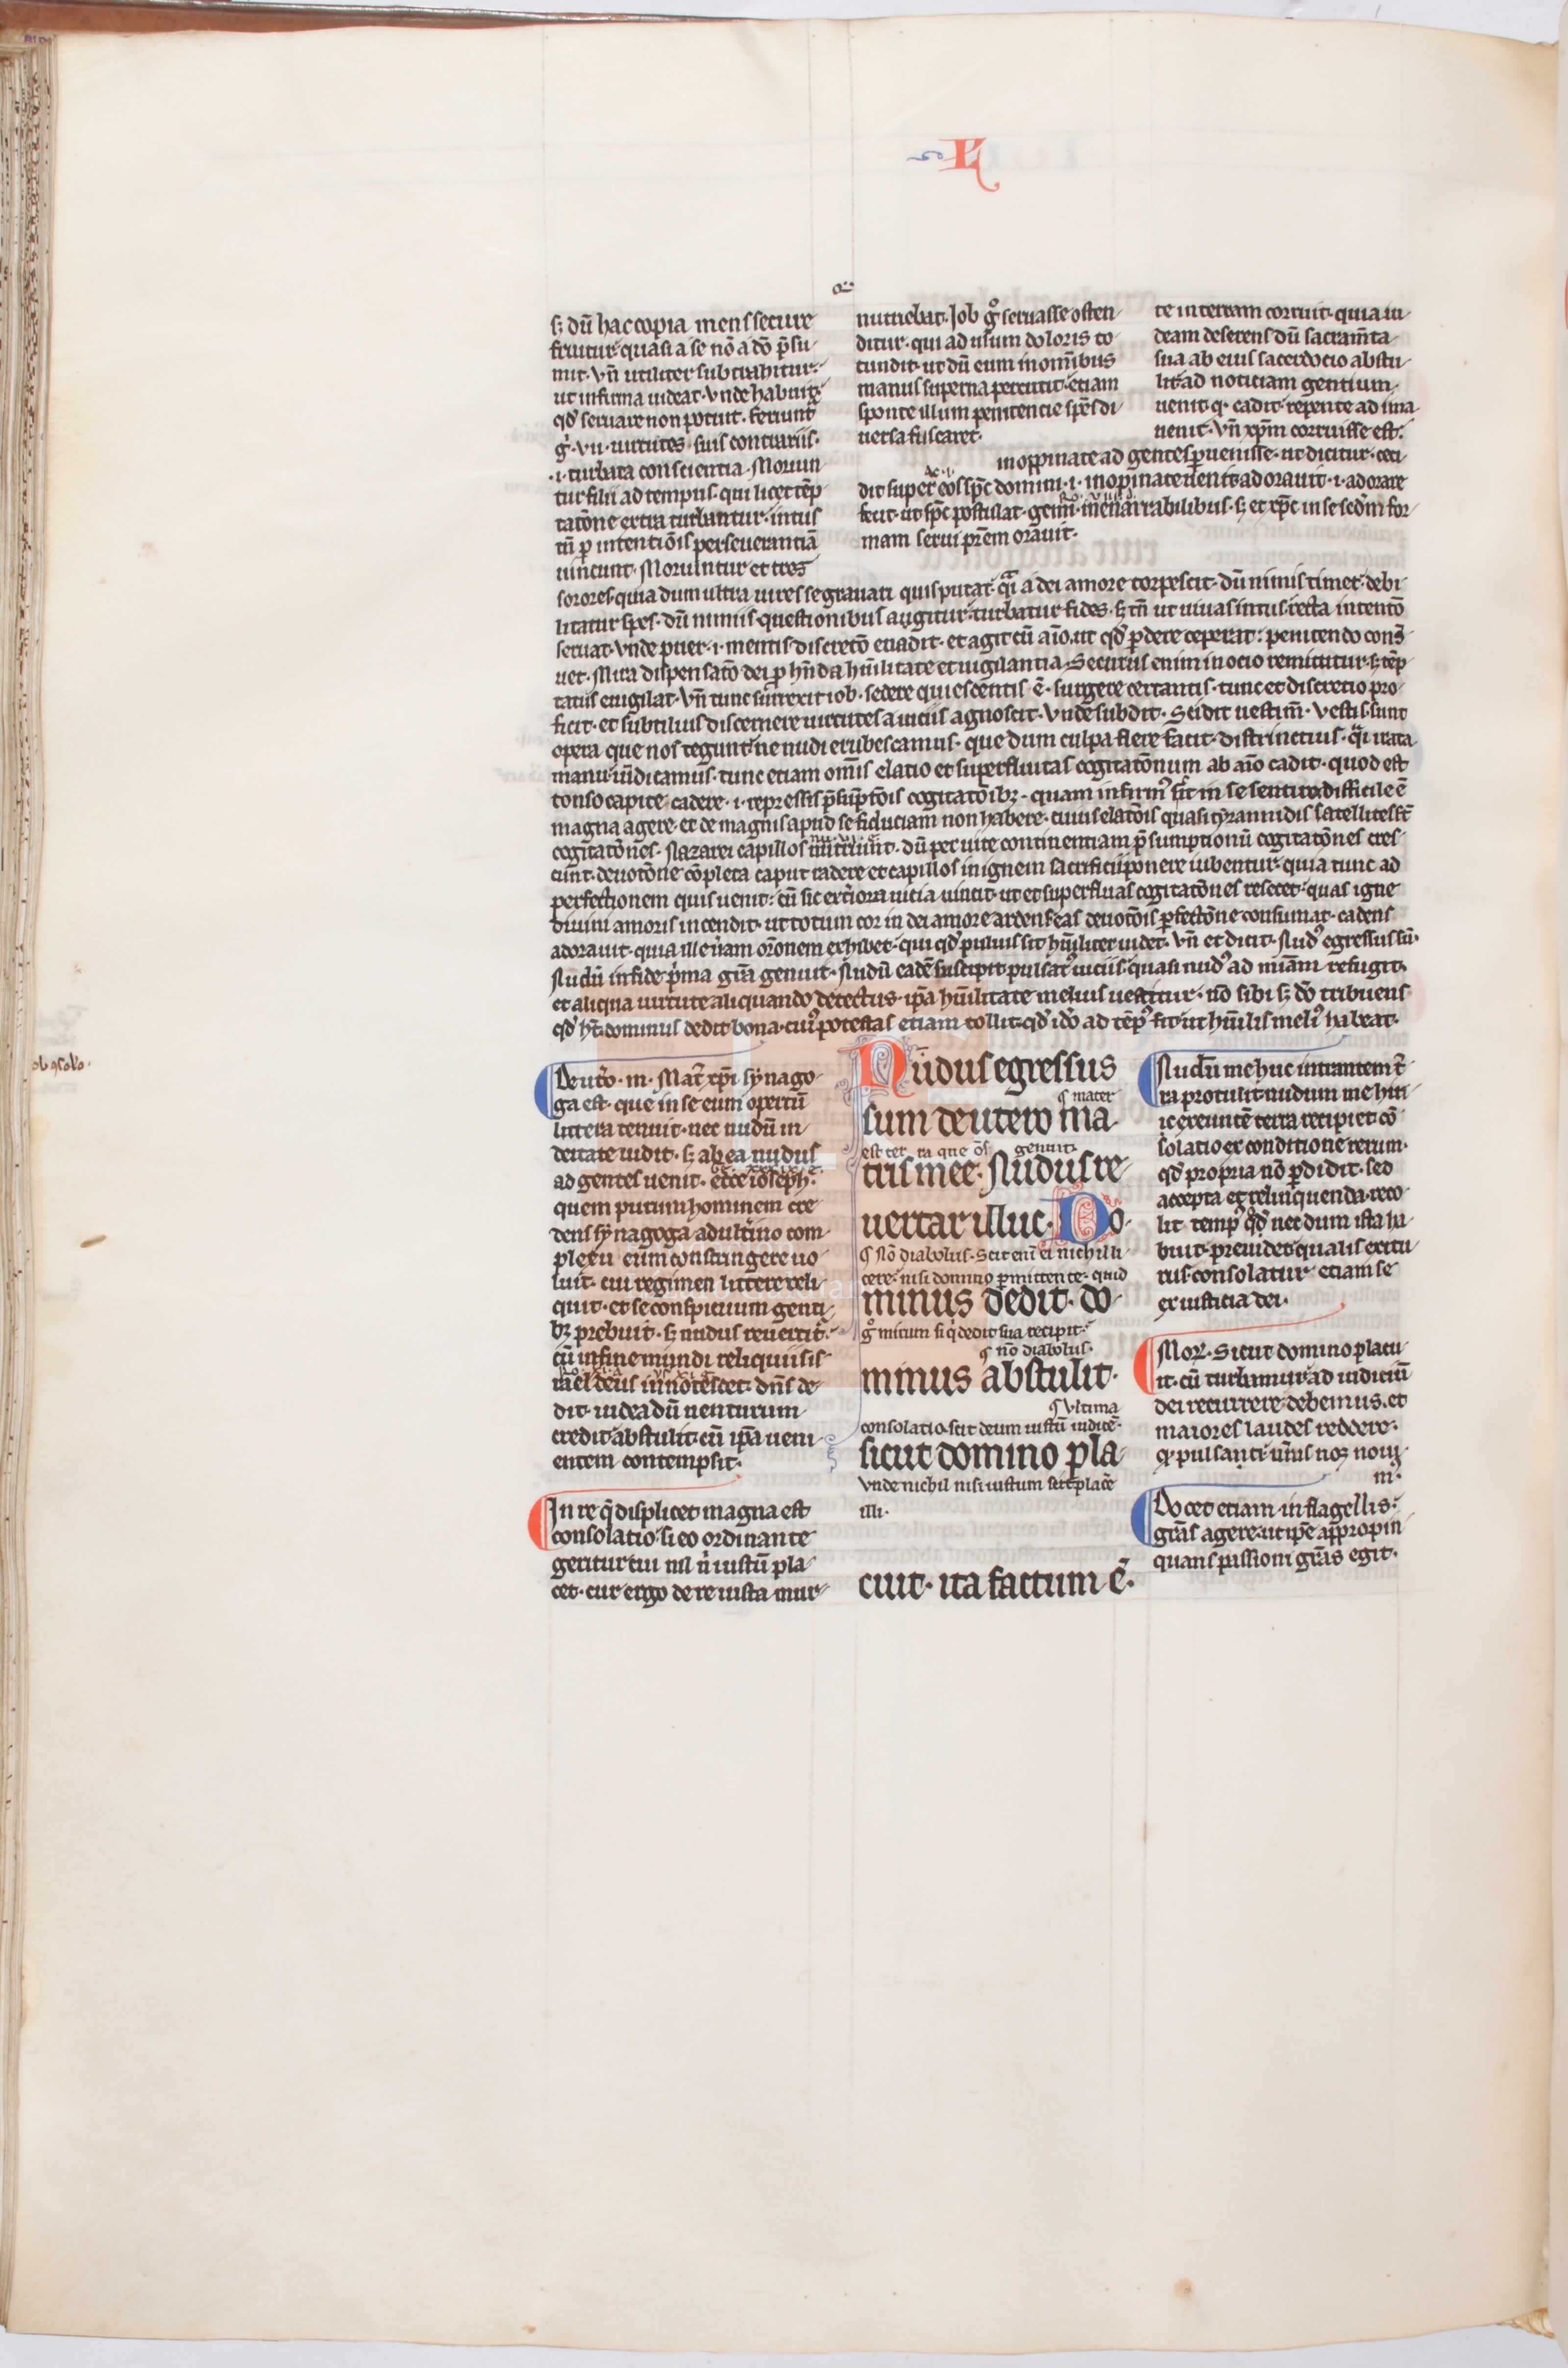 L
s; dũ hac copia mens secure
fruitur quasi a se nõ a dõ p̃su
mit. vñ utiliter subtrahitur.
ut infirma uideat. unde habuit
qd̃ seruare non potuit. feriunt
g̊. vii. uirtutes suis contrariis.
.i. turbata conscientia. Moriun
tur filii ad tempus. qui licet tẽp
tatõne extra turbantur. intus
tñ p intentiõis perseuerantiã
uincunt. Moriuntur et tres
nutriebat. Job g̊ seruasse osten
ditur. qui ad usum doloris to
tundit. ut dũ eum in om̃ibus
manus superna percutit. etiam
sponte illum penitencie spẽs di
uersa fuscaret.
te in terram corruit. quia iu
deam deserens dũ sacram̃ta
sua ab eius sacerdocio abstu
lit. ad noticiam gentium
uenit. q. cadit. repente ad ima
uenit. vñ xp̃m corruisse est.
inopinate ad gentes puenisse. ut dicitur. ceci
dit super eos sp̃c domini. i. inopinate uenit. adorauit. i. adorare
fecit. ut sp̃c postulat. gemi. inenarrabilibus. s; et xp̃c in se sedm̃ for
mam serui pr̃em orauit.
sorores. quia dum ultra uires se grauari quis putat. q̃i a dei amore torpescit. dũ nimis timet. debi
litatur spes. dũ nimiis questionibus augitur. turbatur fides. s; tñ ut uiuas intus. recta intentõ
seruat. vnde puer. i. mentis discretõ euadit. et agit cũ aĩo. ut qd̃ pdere ceperat: penitendo cons̃
uet. Mira dispensatõ dei p hñda hũilitate et uigilantia. Securus enim in ocio remittitur. s; tẽp
tatus euigilat. vñ tunc surrexit iob. sedere quiescentis ẽ. surgere certantis. tunc et discretio pro
ficit. et subtilius discernere uirtutes a uiciis agnoscit. vnde subdit. Scidit uestim̃. vestis sunt
opera que nos tegunt. ne nudi erubescamus. que dum culpa flere facit. districtius q̃i irata
manu uĩdicamus. tunc etiam om̃is elatio et superfluitas cogitatõnum ab aĩo cadit. quod est
tonso capite cadere. i. repressis p̃sũptõis cogitatõib;. quam infirm᾽ sit in se sentire. difficile ẽ
magna agere. et de magnis apud se fiduciam non habere. cuius elatõis quasi tyrannidis satellites st̃
cogitatõnes. Nazarei capillos nutriunt. dũ per uite continentiam p̃sumptionũ cogitatõnes cres
cunt. deuotõne cõpleta caput radere et capillos in ignem sacrificii ponere iubentur. quia tunc ad
perfectionem quis uenit: cũ sic ext̾iora uicia uincit. ut et superfluas cogitatõnes resecet. quas igne
diuini amoris incendit. ut totum cor in dei amore ardens eas deuotõis pfectõne consumat. cadens
adorauit. quia ille ueram orõnem exhibet. qui qd̃ puluis sit hũiliter uidet. vñ et dicit. Nud᾽ egressus sũ.
Nudũ in fide p̾ma grã genuit. Nudũ eadẽ suscipit. pulsat᾽ uiciis. quasi nud᾽ ad miam refugit.
et aliqua uirtute aliquando detectus. ip̃a hũilitate melius uestitur. nõ sibi s; dõ tribuens
qd̃ ht̃. dominus dedit bona. cui᾽ potestas etiam tollit. qd̃ idõ ad tẽp᾽ fit. ut hũilis meli᾽ habeat.
Deutõ. m. Mat̃ xp̃i synago
ga est. que in se eum opertũ
littera tenuit. nec nudũ in
deitate uidit. s; ab ea nudus
ad gentes uenit. ecce ioseph.
quem purum hominem cre
dens synagoga adult̾ino com
plexu eum constringere uo
luit. cui regimen littere reli
quit. et se conspicuum genti
b; prebuit. s; nudus reuertit̾.
cũ in fine mundi reliquiis is
rael deus innotescet. dñs de
dit. iudea dũ uenturum
credit. abstulit. cũ ip̃a ueni
entem contempsit.
In re q̃ displicet magna est
consolatio. si eo ordinante
geritur cui nil n̾ iustũ pla
cet. cur ergo de re iusta mur
Nudus egressus
¶ mater
sum de utero ma
est ter ra que õs genuit.
tris mee. Nudus re
uertar illuc. Do
¶ Nõ diabolus. Scit enĩ ei nichil li
cere. nisi domino pmittente. quid
minus dedit. do
g̊ mirum si q̃ dedit sua recipit.
¶ nõ diabolus.
minus abstulit.
¶ Vltima
consolatio. scit deum iustũ iudicẽ.
sicut domino pla
vnde nichil nisi iustum scit placẽ
illi.
cuit. ita factum ẽ.
Nudũ me huc intrantem t̾
ra protulit. nudum me hin
ic exeuntẽ terra recipiet. cõ
solatio ex conditione rerum.
qd̃ propria nõ pdidit. sed
accepta et relinquenda. reco
lit temp᾽ qd̃ nec dum ista ha
buit. preuidet qualis exitu
rus. consolatur etiam se
ex iusticia dei.
Mor. Sicut domino placu
it. cũ turbamur. ad iudiciũ
dei recurrere debemus. et
maiores laudes reddere.
docet etiam in flagellis.
grãs agere. ut ipse appropin
quans passioni grãs egit.